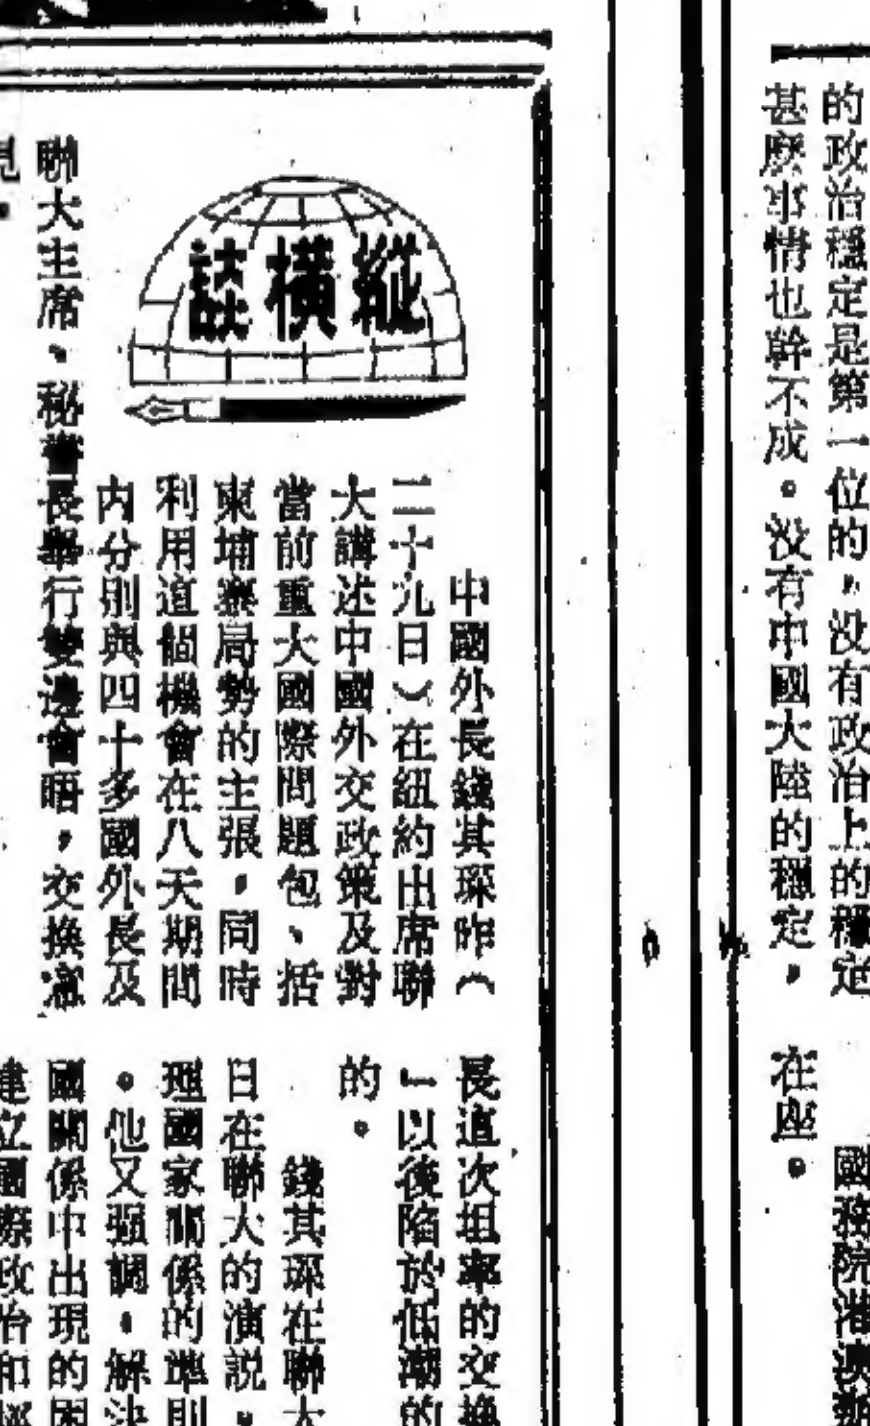 的政治穩定是第一位的，没有政治上的穩定
甚麽事情也幹不成。没有中國大陸的穩定，
國務院港澳
在座。
縱橫談
中國外長錢其琛昨（
二十九日）在紐約出席聯
大講述中國外交政策及對
當前重大國際問題包、括
柬埔寨局勢的主張，同時
利用這個機會在八天期間
内分別與四十多國外長及
聯大主席、秘書長舉行雙邊會晤，交換意
見。
長這次坦率的交換
」以後陷於低潮的
的。
錢其琛在聯大
日在聯大的演説，
理國家關係的準則
。他又强調，解決
國關係中出現的困
建立國際政治和經